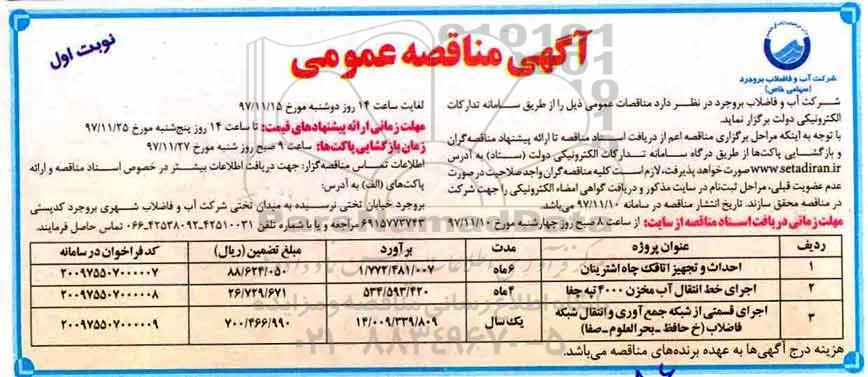 نوبت اول
آگهی مناقصه عمومی
شرکت آب و فاضلاب بروجرد
(سهامی خاص)
شرکت آب و فاضلاب بروجرد در نظر دارد مناقصات عمومی ذیل را از طریق سامانه تدارکات
الکترونیکی دولت برگزار نماید.
با توجه به اینکه مراحل برگزاری مناقصه اعم از دریافت اسناد مناقصه تا ارائه پیشنهاد مناقصه‌گران
و بازگشایی پاکت‌ها از طریق درگاه سامانه تدارکات الکترونیکی دولت (ستاد) به آدرس
www.setadiran.ir صورت خواهد پذیرفت، لازم است کلیه مناقصه‌گران واجد صلاحیت در صورت
عدم عضویت قبلی، مراحل ثبت‌نام در سایت مذکور و دریافت گواهی امضاء الکترونیکی را جهت شرکت
در مناقصه محقق سازند. تاریخ انتشار مناقصه در سامانه ۹۷/۱۱/۱۰ می‌باشد.
مهلت زمانی دریافت اسناد مناقصه از سایت: از ساعت ۸ صبح روز چهارشنبه مورخ ۹۷/۱۱/۱۰
لغایت ساعت ۱۴ روز دوشنبه مورخ ۹۷/۱۱/۱۵
مهلت زمانی ارائه پیشنهادهای قیمت: تا ساعت ۱۴ روز پنج‌شنبه مورخ ۹۷/۱۱/۲۵
زمان بازگشایی پاکت‌ها: ساعت ۹ صبح روز شنبه مورخ ۹۷/۱۱/۲۷
اطلاعات تماس مناقصه‌گزار: جهت دریافت اطلاعات بیشتر در خصوص اسناد مناقصه و ارائه
پاکت‌های (الف) به آدرس:
بروجرد خیابان تختی نرسیده به میدان تختی شرکت آب و فاضلاب شهری بروجرد کدپستی
۶۹۱۵۷۷۳۷۴۳ مراجعه و یا با شماره تلفن ۴۲۵۱۰۰۳۱-۴۲۵۳۸۰۹۲-۰۶۶ تماس حاصل فرمایند.
ردیف عنوان پروژه مدت برآورد مبلغ تضمین (ریال) کد فراخوان در سامانه
۱ احداث و تجهیز اتاقک چاه اشترینان ۶ ماه ۱/۷۷۲/۴۸۱/۰۰۷ ۸۸/۶۲۴/۰۵۰ ۲۰۰۹۷۵۵۰۷۰۰۰۰۰۷
۲ اجرای خط انتقال آب مخزن ۴۰۰۰ تپه چغا ۴ ماه ۵۳۴/۵۹۳/۴۲۰ ۲۶/۷۲۹/۶۷۱ ۲۰۰۹۷۵۵۰۷۰۰۰۰۰۸
۳ اجرای قسمتی از شبکه جمع آوری و انتقال شبکه فاضلاب (خ حافظ - بحرالعلوم - صفا) یک سال ۱۴/۰۰۹/۳۳۹/۸۰۹ ۷۰۰/۴۶۶/۹۹۰ ۲۰۰۹۷۵۵۰۷۰۰۰۰۰۹
هزینه درج آگهی‌ها به عهده برنده‌های مناقصه می‌باشد.
۰۲۱-۸۸۳۴۹۶۷۰-۵